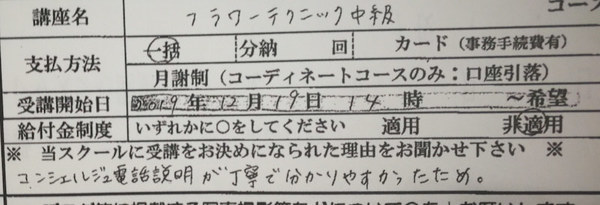 講座名 フラワーテクニック中級 コース
支払方法 一括 分納 回 カード（事務手続費有）
月謝制（コーディネートコースのみ：口座引落）
受講開始日 9年12月19日 14時 ～希望
給付金制度 いずれかに○をしてください 適用 非適用
※ 当スクールに受講をお決めになられた理由をお聞かせ下さい ※
コンシェルジュ電話説明が丁寧で分かりやすかったため。